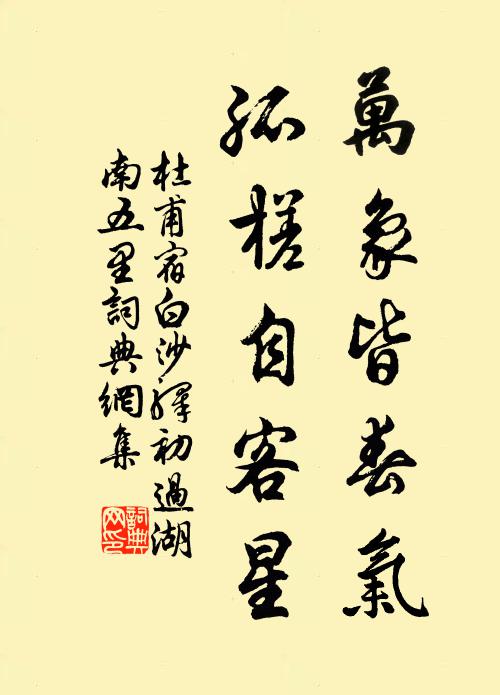 萬象皆春氣
孤槎自客星
杜甫宿白沙驛初過湖
南五里詞典網集
詞典
网印